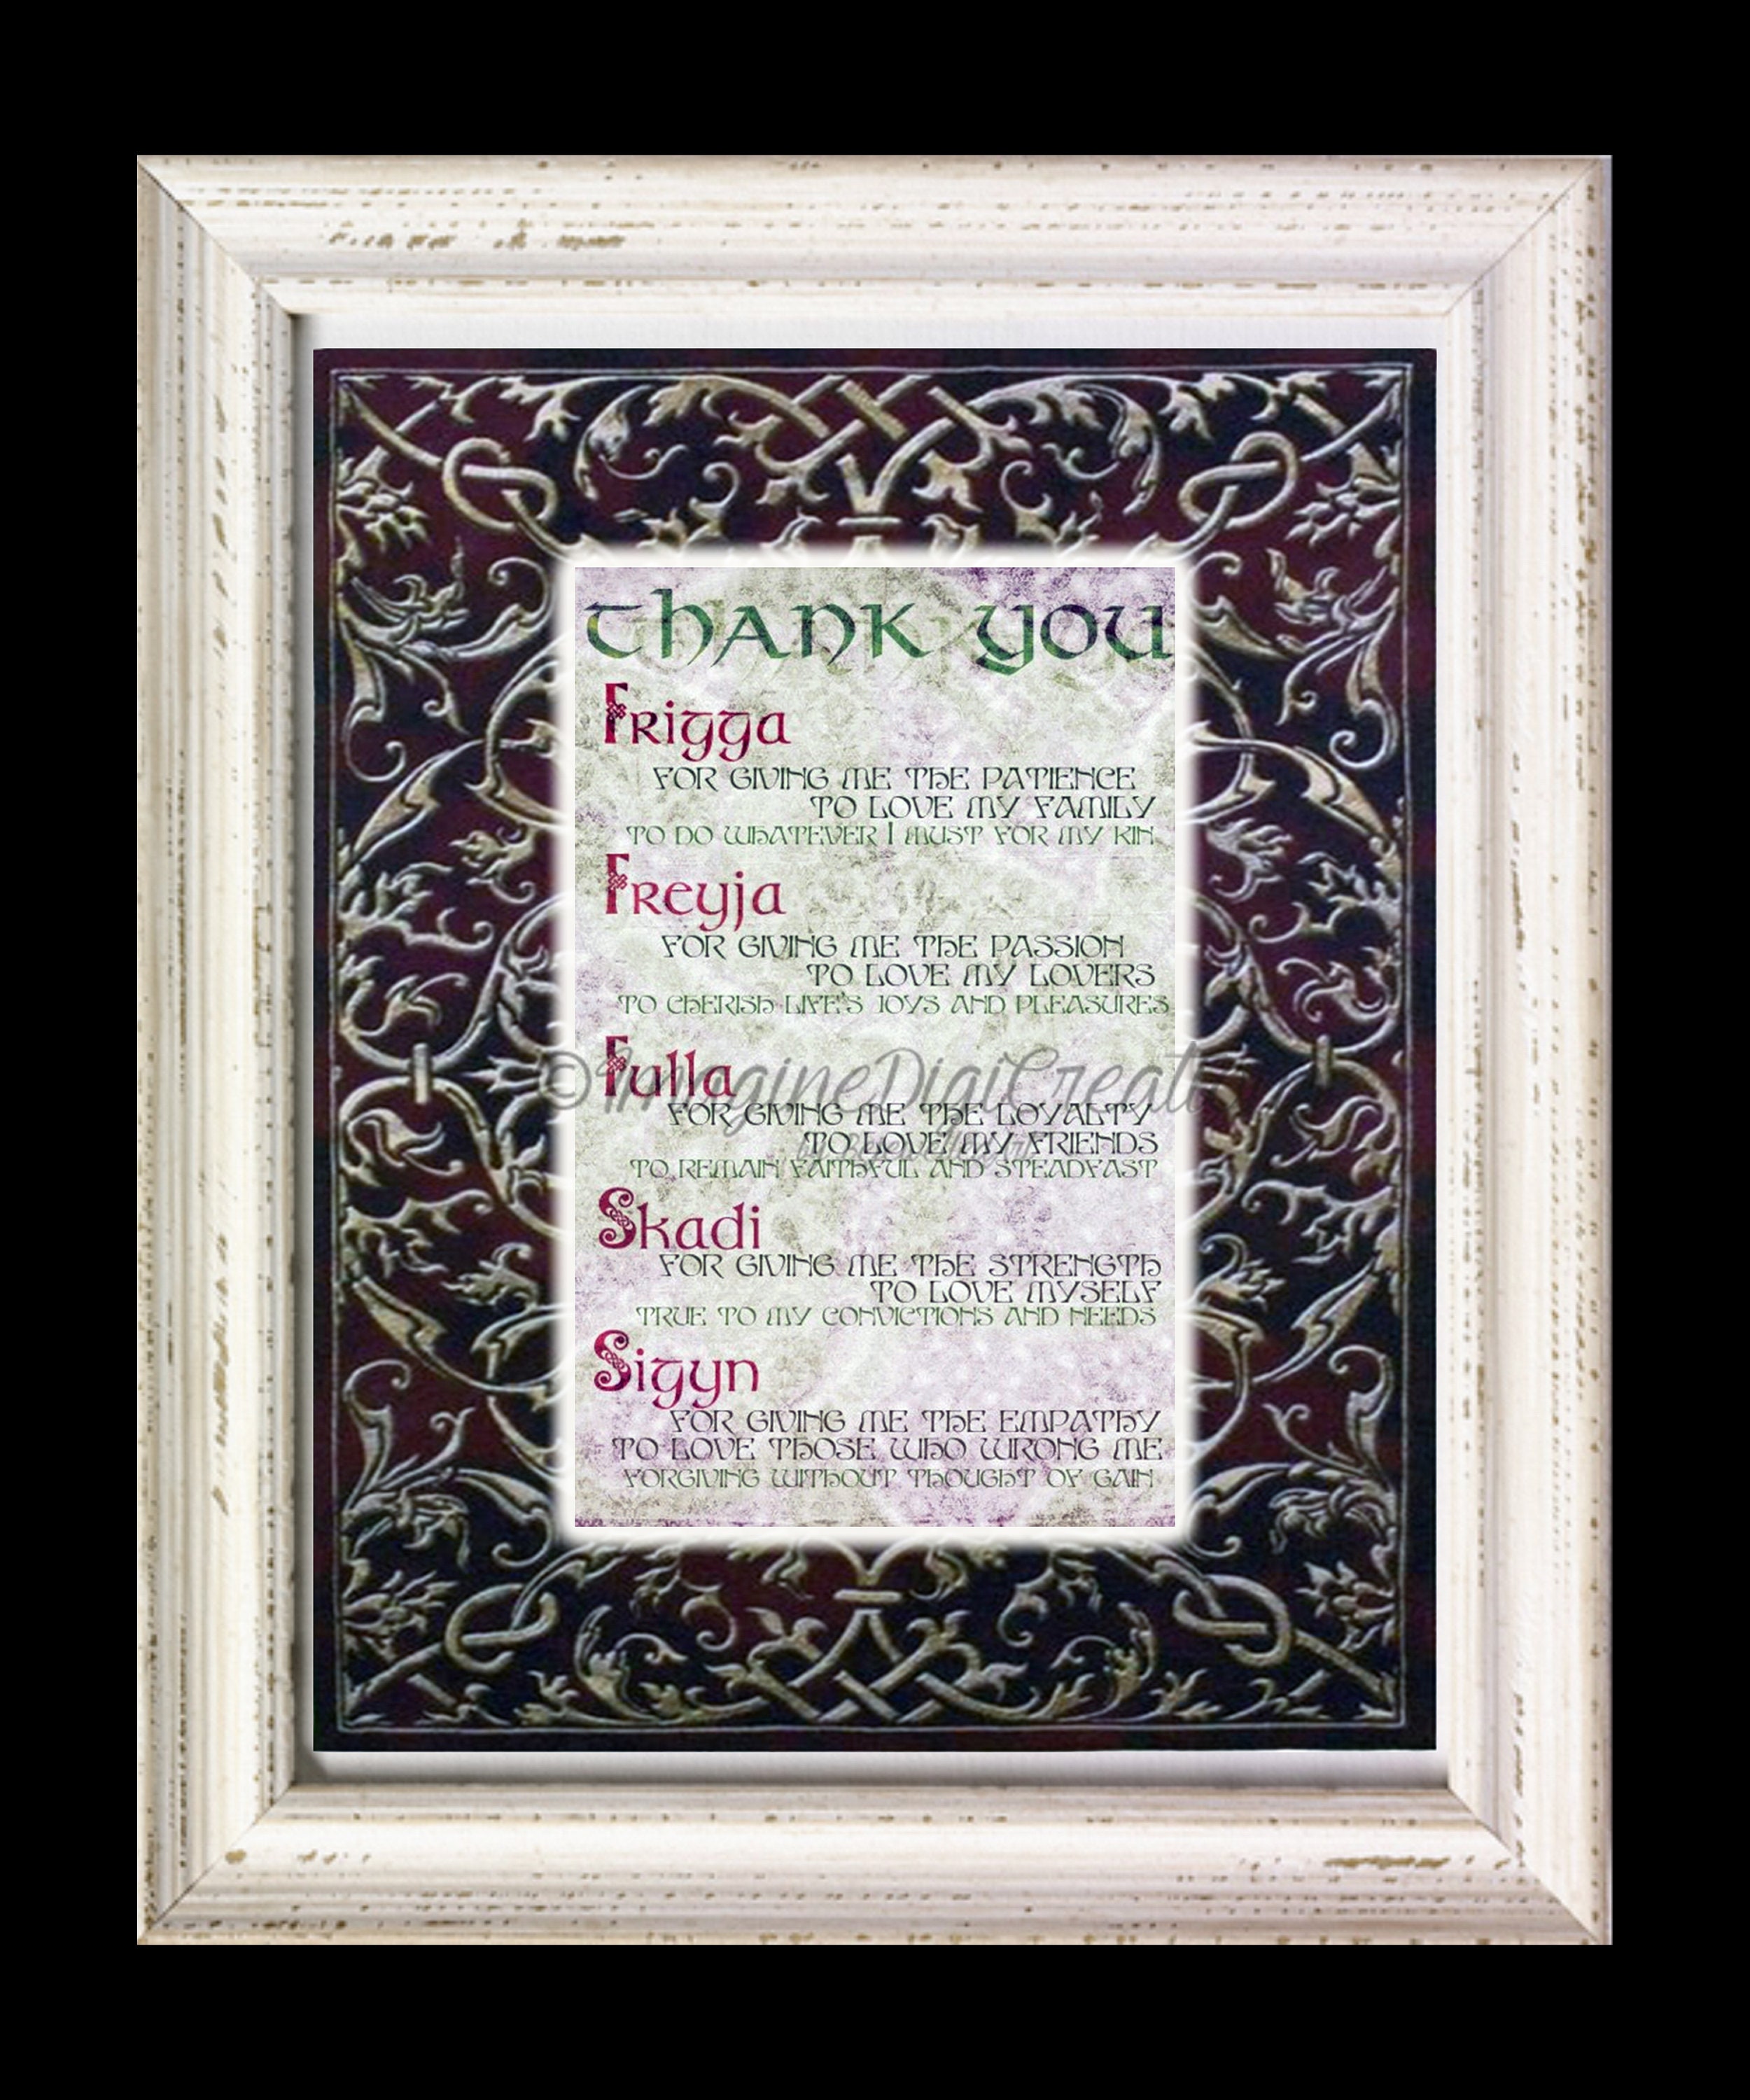 THANK YOU
Frigga
FOR GIVING ME THE PATIENCE
TO LOVE MY FAMILY
TO DO WHATEVER I MUST FOR MY KIN
Freyja
FOR GIVING ME THE PASSION
TO LOVE MY LOVERS
TO CHERISH LIFE'S JOYS AND PLEASURES
Fulla
©ImagineDigiCreati
FOR GIVING ME THE LOYALTY
TO LOVE MY FRIENDS
TO REMAIN FAITHFUL AND STEADFAST
Skadi
FOR GIVING ME THE STRENGTH
TO LOVE MYSELF
TRUE TO MY CONVICTIONS AND NEEDS
Sigyn
FOR GIVING ME THE EMPATHY
TO LOVE THOSE WHO WRONG ME
FORGIVING WITHOUT THOUGHT OF GAIN